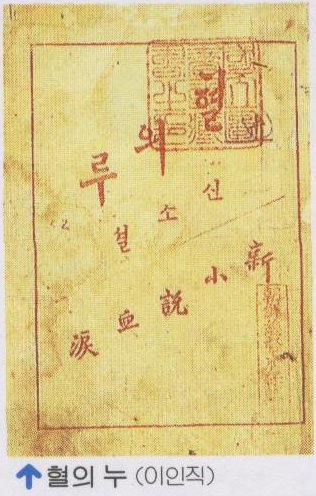 혈의루
신소셜
新小說 血淚
혈의 누 (이인직)